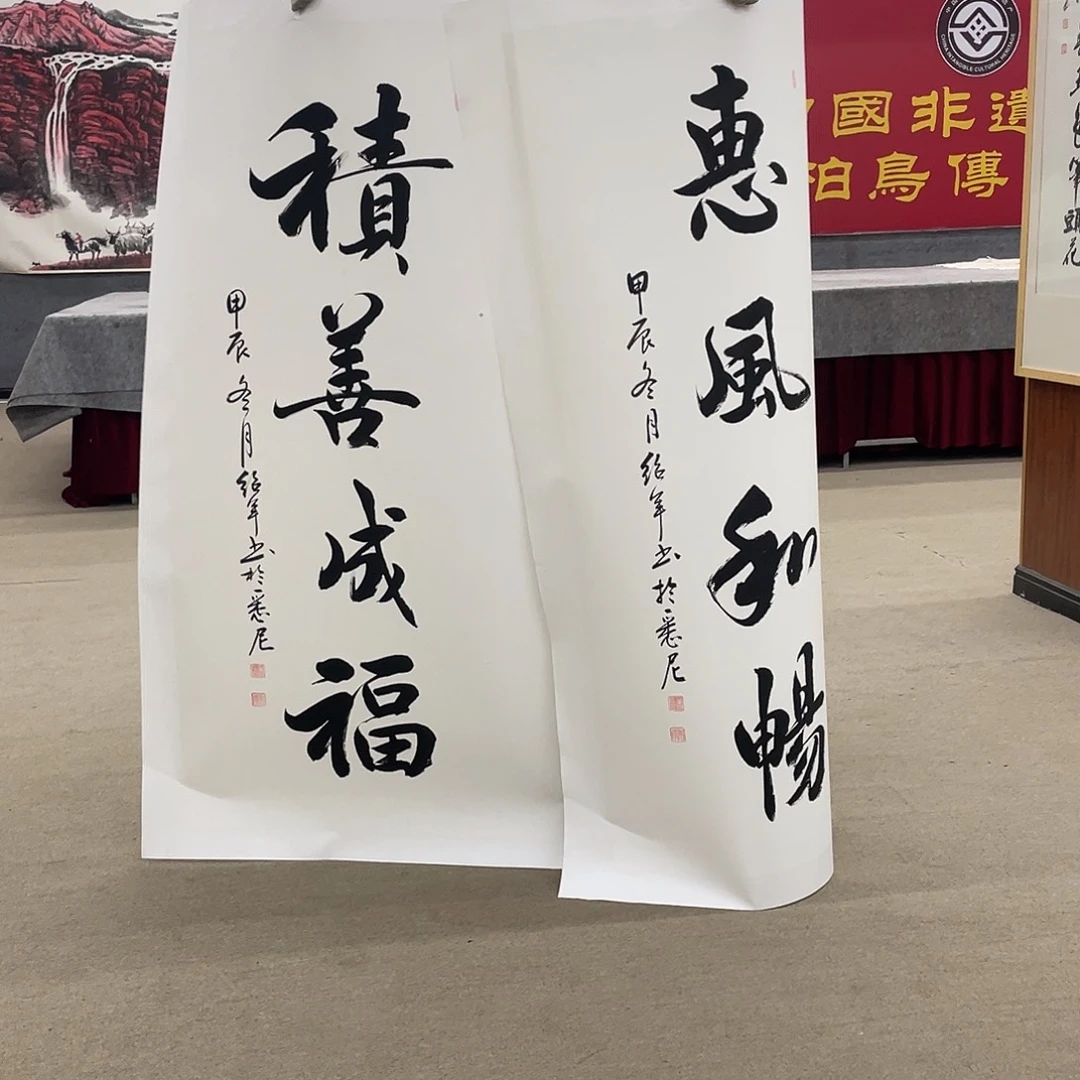 惠風和暢
甲辰冬月紹年书於悉尼
積善成福
甲辰冬月紹年书於悉尼
國非遺
柏鳥傳
CHINA INTANGIBLE CULTURAL HERITAGE